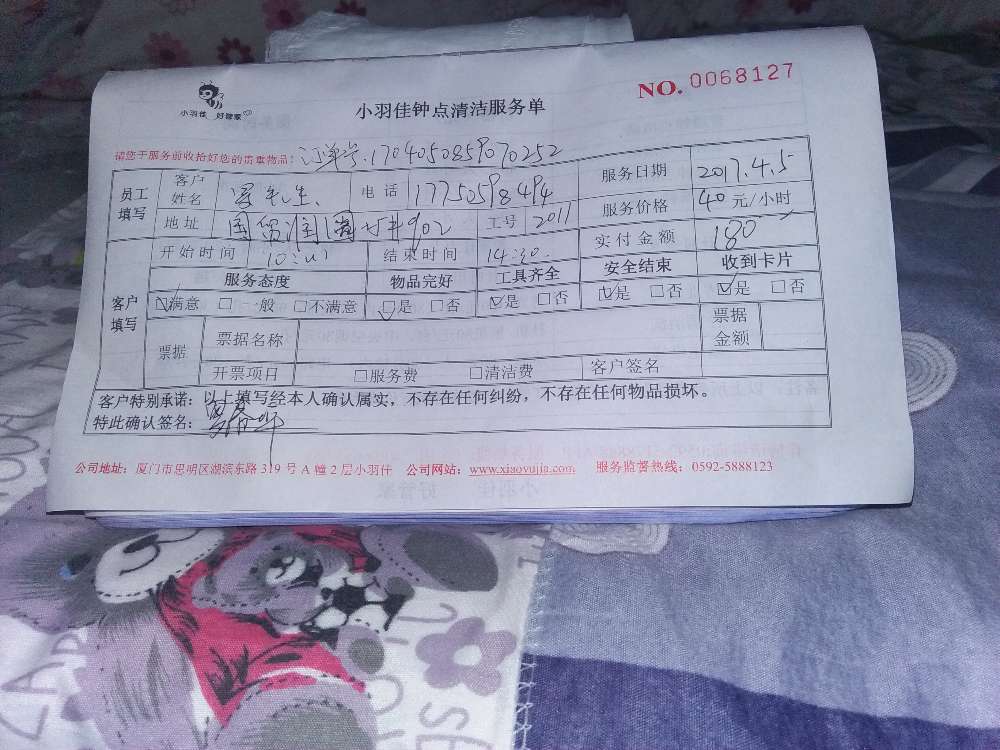 小羽佳 好管家
小羽佳钟点清洁服务单
NO. 0068127
请您于服务前收拾好您的贵重物品: 订单号.170405085970252
员工填写 客户姓名 先生. 电话 17750598494 服务日期 2017.4.5
地址 902 工号 2011 服务价格 40 元/小时
客户填写 开始时间 10:00 结束时间 14:30. 实付金额 180
服务态度 物品完好 工具齐全 安全结束 收到卡片
☑满意 □一般 □不满意 ☑是 □否 ☑是 □否 ☑是 □否 ☑是 □否
票据 票据名称 票据金额
开票项目 □服务费 □清洁费 客户签名
客户特别承诺:以上填写经本人确认属实,不存在任何纠纷,不存在任何物品损坏。
特此确认签名:
公司地址:厦门市思明区湖滨东路 319 号 A 幢 2 层小羽佳 公司网站:www.xiaoyujia.com 服务监督热线:0592-5888123